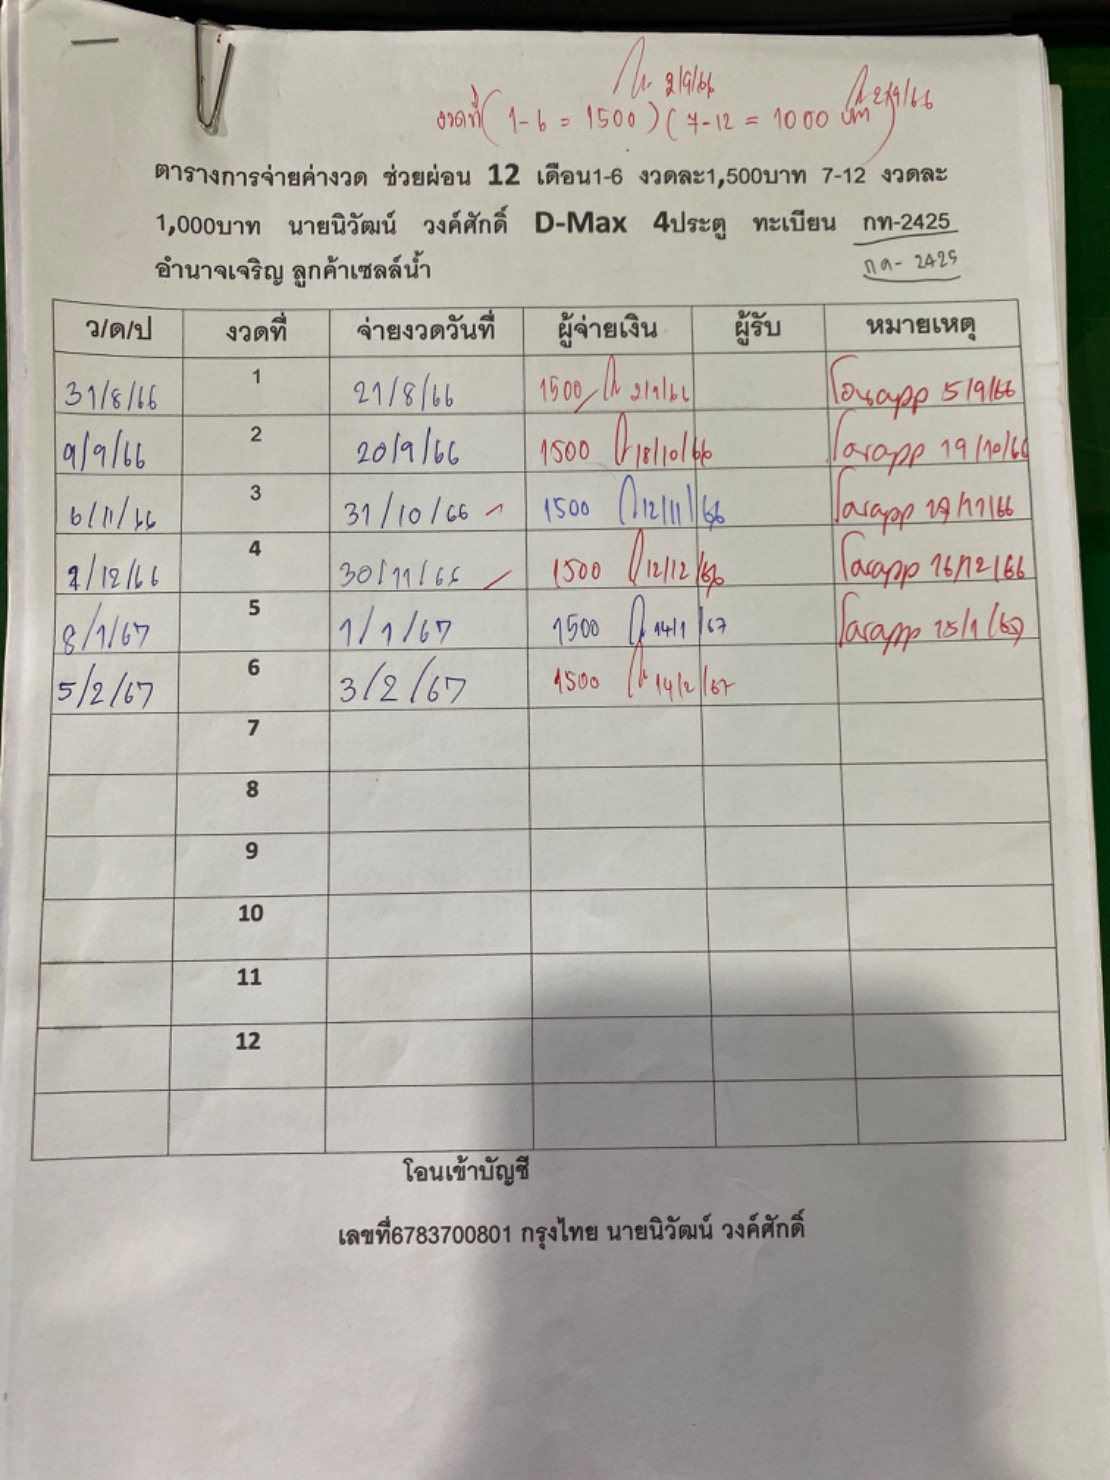 2/9/66 2/9/66
งวดที่ (1-6 = 1500) (7-12 = 1000 บาท)
ตารางการจ่ายค่างวด ช่วยผ่อน 12 เดือน1-6 งวดละ1,500บาท 7-12 งวดละ
1,000บาท นายนิวัฒน์ วงค์ศักดิ์ D-Max 4ประตู ทะเบียน กท-2425
กต- 2425
อำนาจเจริญ ลูกค้าเซลล์น้ำ
ว/ด/ป งวดที่ จ่ายงวดวันที่ ผู้จ่ายเงิน ผู้รับ หมายเหตุ
31/8/66 1 21/8/66 1500 2/9/66 โอนapp 5/9/66
9/9/66 2 20/9/66 1500 18/10/66 โอนapp 19/10/66
6/11/66 3 31/10/66 1500 12/11/66 โอนapp /11/66
/12/66 4 30/11/66 1500 12/12/66 โอนapp 16/12/66
8/1/67 5 1/1/67 1500 14/1/67 โอนapp 15/1/67
5/2/67 6 3/2/67 1500 14/2/67
7
8
9
10
11
12
โอนเข้าบัญชี
เลขที่6783700801 กรุงไทย นายนิวัฒน์ วงค์ศักดิ์